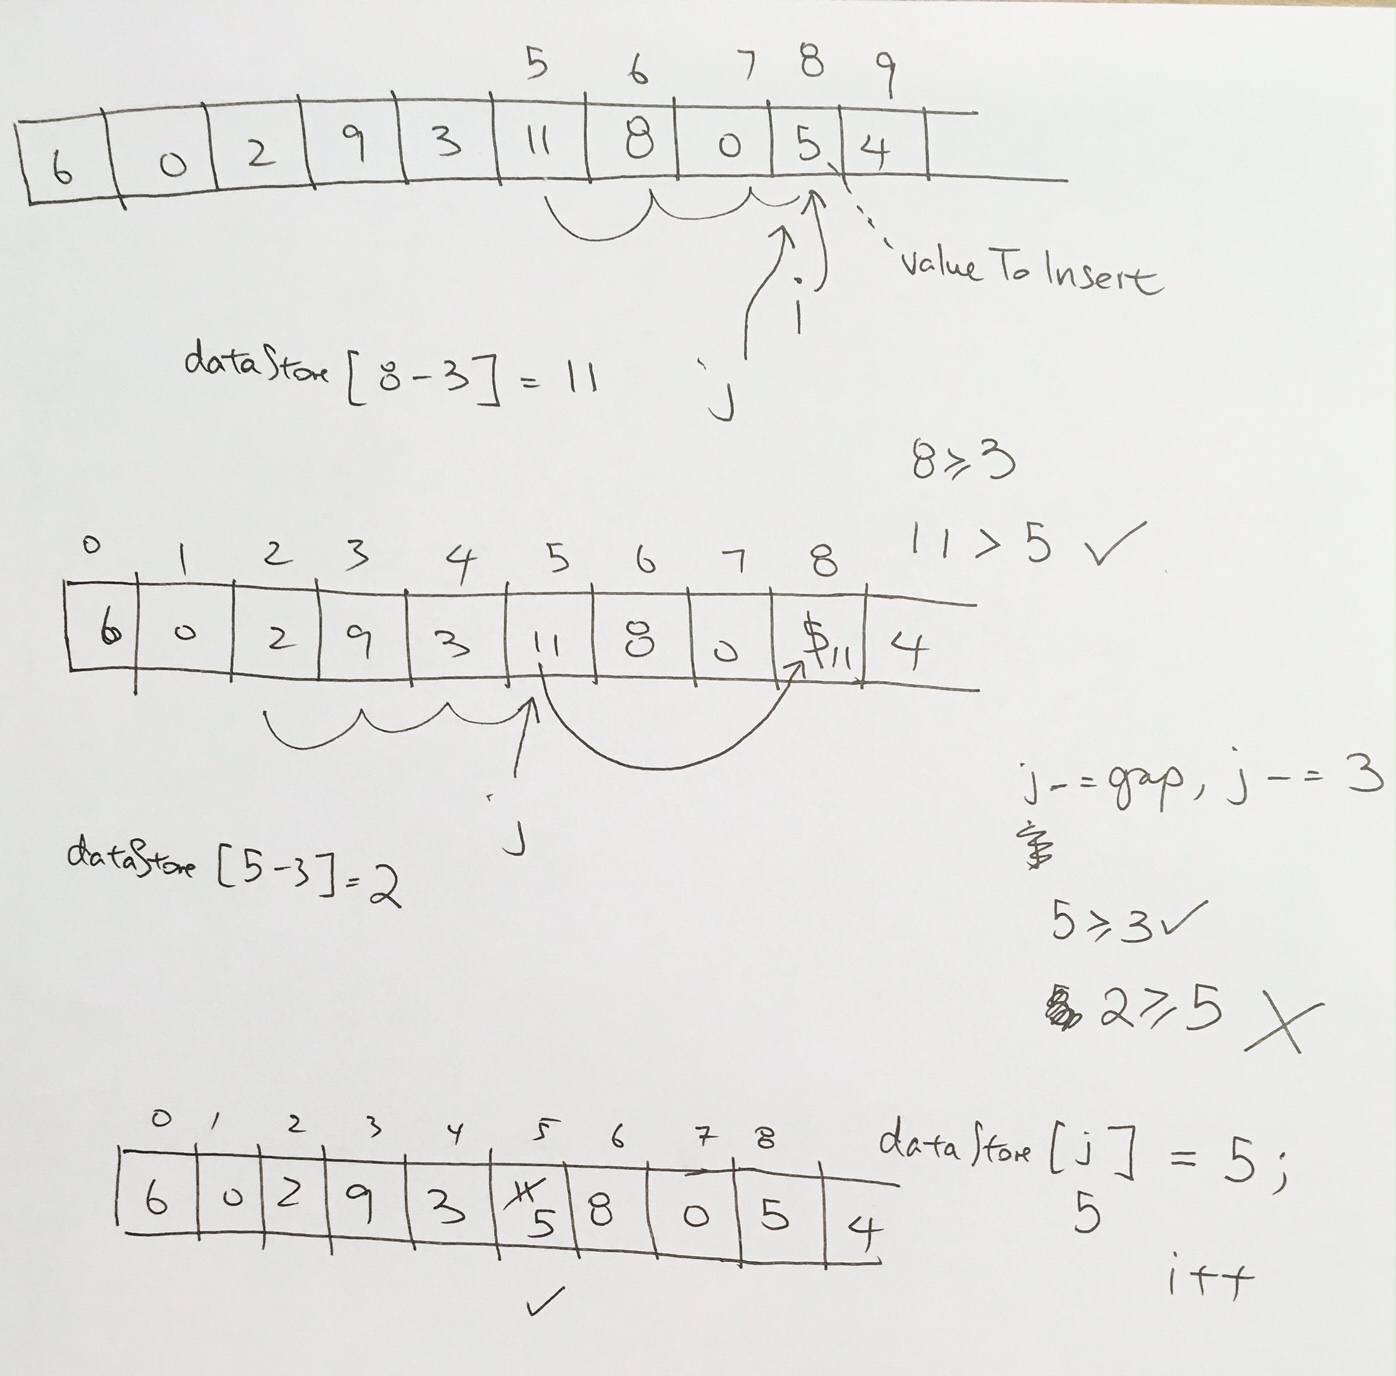 5 6 7 8 9
6 0 2 9 3 11 8 0 5 4
value To Insert
i
dataStore [8-3] = 11
j
8⩾3
11 > 5 ✓
0 1 2 3 4 5 6 7 8
6 0 2 9 3 11 8 0 5 11 4
j-=gap, j-=3
j
dataStore [5-3]=2
5⩾3✓
2⩾5 X
0 1 2 3 4 5 6 7 8
6 0 2 9 3 11 5 8 0 5 4
✓
dataStore [j] = 5;
5
i++